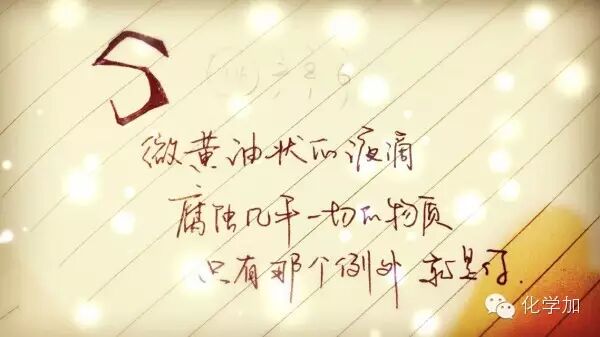 S
微黄油状的液滴
腐蚀几乎一切的物质
只有那个例外 就是你.
化学加